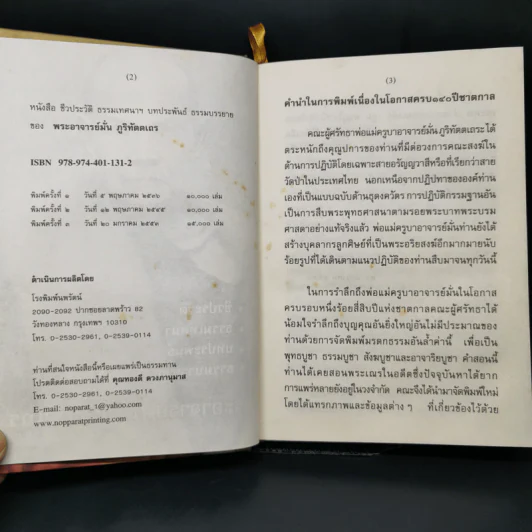 (2)
หนังสือ ชีวประวัติ ธรรมเทศนาฯ บทประพันธ์ ธรรมบรรยาย
ของ พระอาจารย์มั่น ภูริทัตตเถร
ISBN 978-974-401-131-2
พิมพ์ครั้งที่ ๑ วันที่ ๕ พฤษภาคม ๒๕๓๖ ๑๐,๐๐๐ เล่ม
พิมพ์ครั้งที่ ๒ วันที่ ๑๒ พฤษภาคม ๒๕๔๕ ๑๐,๐๐๐ เล่ม
พิมพ์ครั้งที่ ๓ วันที่ ๒๐ มกราคม ๒๕๕๓ ๑๕,๐๐๐ เล่ม
ดำเนินการผลิตโดย
โรงพิมพ์นพรัตน์
2090-2092 ปากซอยลาดพร้าว 82
วังทองหลาง กรุงเทพฯ 10310
โทร. 0-2530-2961, 0-2539-0114
ท่านที่สนใจหนังสือนี้หรือเผยแพร่เป็นธรรมทาน
โปรดติดต่อสอบถามได้ที่ คุณทองดี ควงภานุมาส
โทร. 0-2530-2961, 0-2539-0114
E-mail: noparat_1@yahoo.com
www.nopparatprinting.com
(3)
คำนำในการพิมพ์เนื่องในโอกาสครบ๑๔๐ปีชาตกาล
คณะผู้ศรัทธาพ่อแม่ครูบาอาจารย์มั่น ภูริทัตตเถระได้
ตระหนักถึงคุณูปการของท่านที่มีต่อวงการคณะสงฆ์ใน
ด้านการปฏิบัติโดยเฉพาะสายอรัญญวาสีหรือที่เรียกว่าสาย
วัดป่าในประเทศไทย นอกเหนือจากปฏิปทาขององค์ท่าน
เองที่เป็นแบบฉบับด้านธุดงควัตร การปฏิบัติกรรมฐานอัน
เป็นการสืบพระพุทธศาสนาตามรอยพระบาทพระบรม
ศาสดาอย่างแท้จริงแล้ว พ่อแม่ครูบาอาจารย์มั่นท่านยังได้
สร้างบุคลากรลูกศิษย์ที่เป็นพระอริยสงฆ์อีกมากมายนับ
ร้อยรูปที่ได้เดินตามแนวปฏิบัติของท่านสืบมาจนทุกวันนี้
ในการรำลึกถึงพ่อแม่ครูบาอาจารย์มั่นในโอกาส
ครบรอบหนึ่งร้อยสี่สิบปีแห่งชาตกาลคณะผู้ศรัทธาได้
น้อมใจรำลึกถึงบุญคุณอันยิ่งใหญ่อันไม่มีประมาณของ
ท่านด้วยการจัดพิมพ์มรดกธรรมอันล้ำค่านี้ เพื่อเป็น
พุทธบูชา ธรรมบูชา สังฆบูชาและอาจาริยบูชา คำสอนนี้
ท่านได้เคยสอนพระเณรในอดีตซึ่งปัจจุบันหาได้ยาก
การแพร่หลายยังอยู่ในวงจำกัด คณะจึงได้นำมาจัดพิมพ์ใหม่
โดยได้แทรกภาพและข้อมูลต่าง ๆ ที่เกี่ยวข้องไว้ด้วย